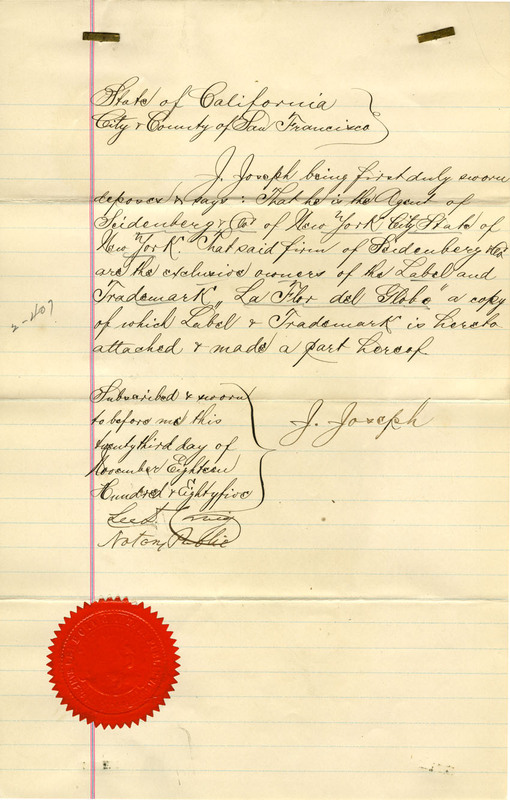 State of California
City & County of San Francisco
J. Joseph being first duly sworn
deposes & says: That he is the Agent of
Seidenberg & Co of New York City State of
New York. That said firm of Seidenberg & Co
are the exclusive owners of the Label and
Trademark "La Flor del Globo" a copy
of which Label & Trademark is hereto
attached & made a part hereof
2-407
Subscribed & sworn
to before me this
twenty third day of
November Eighteen
Hundred & Eightyfive
J. Joseph
Lee D. Craig
Notary Public